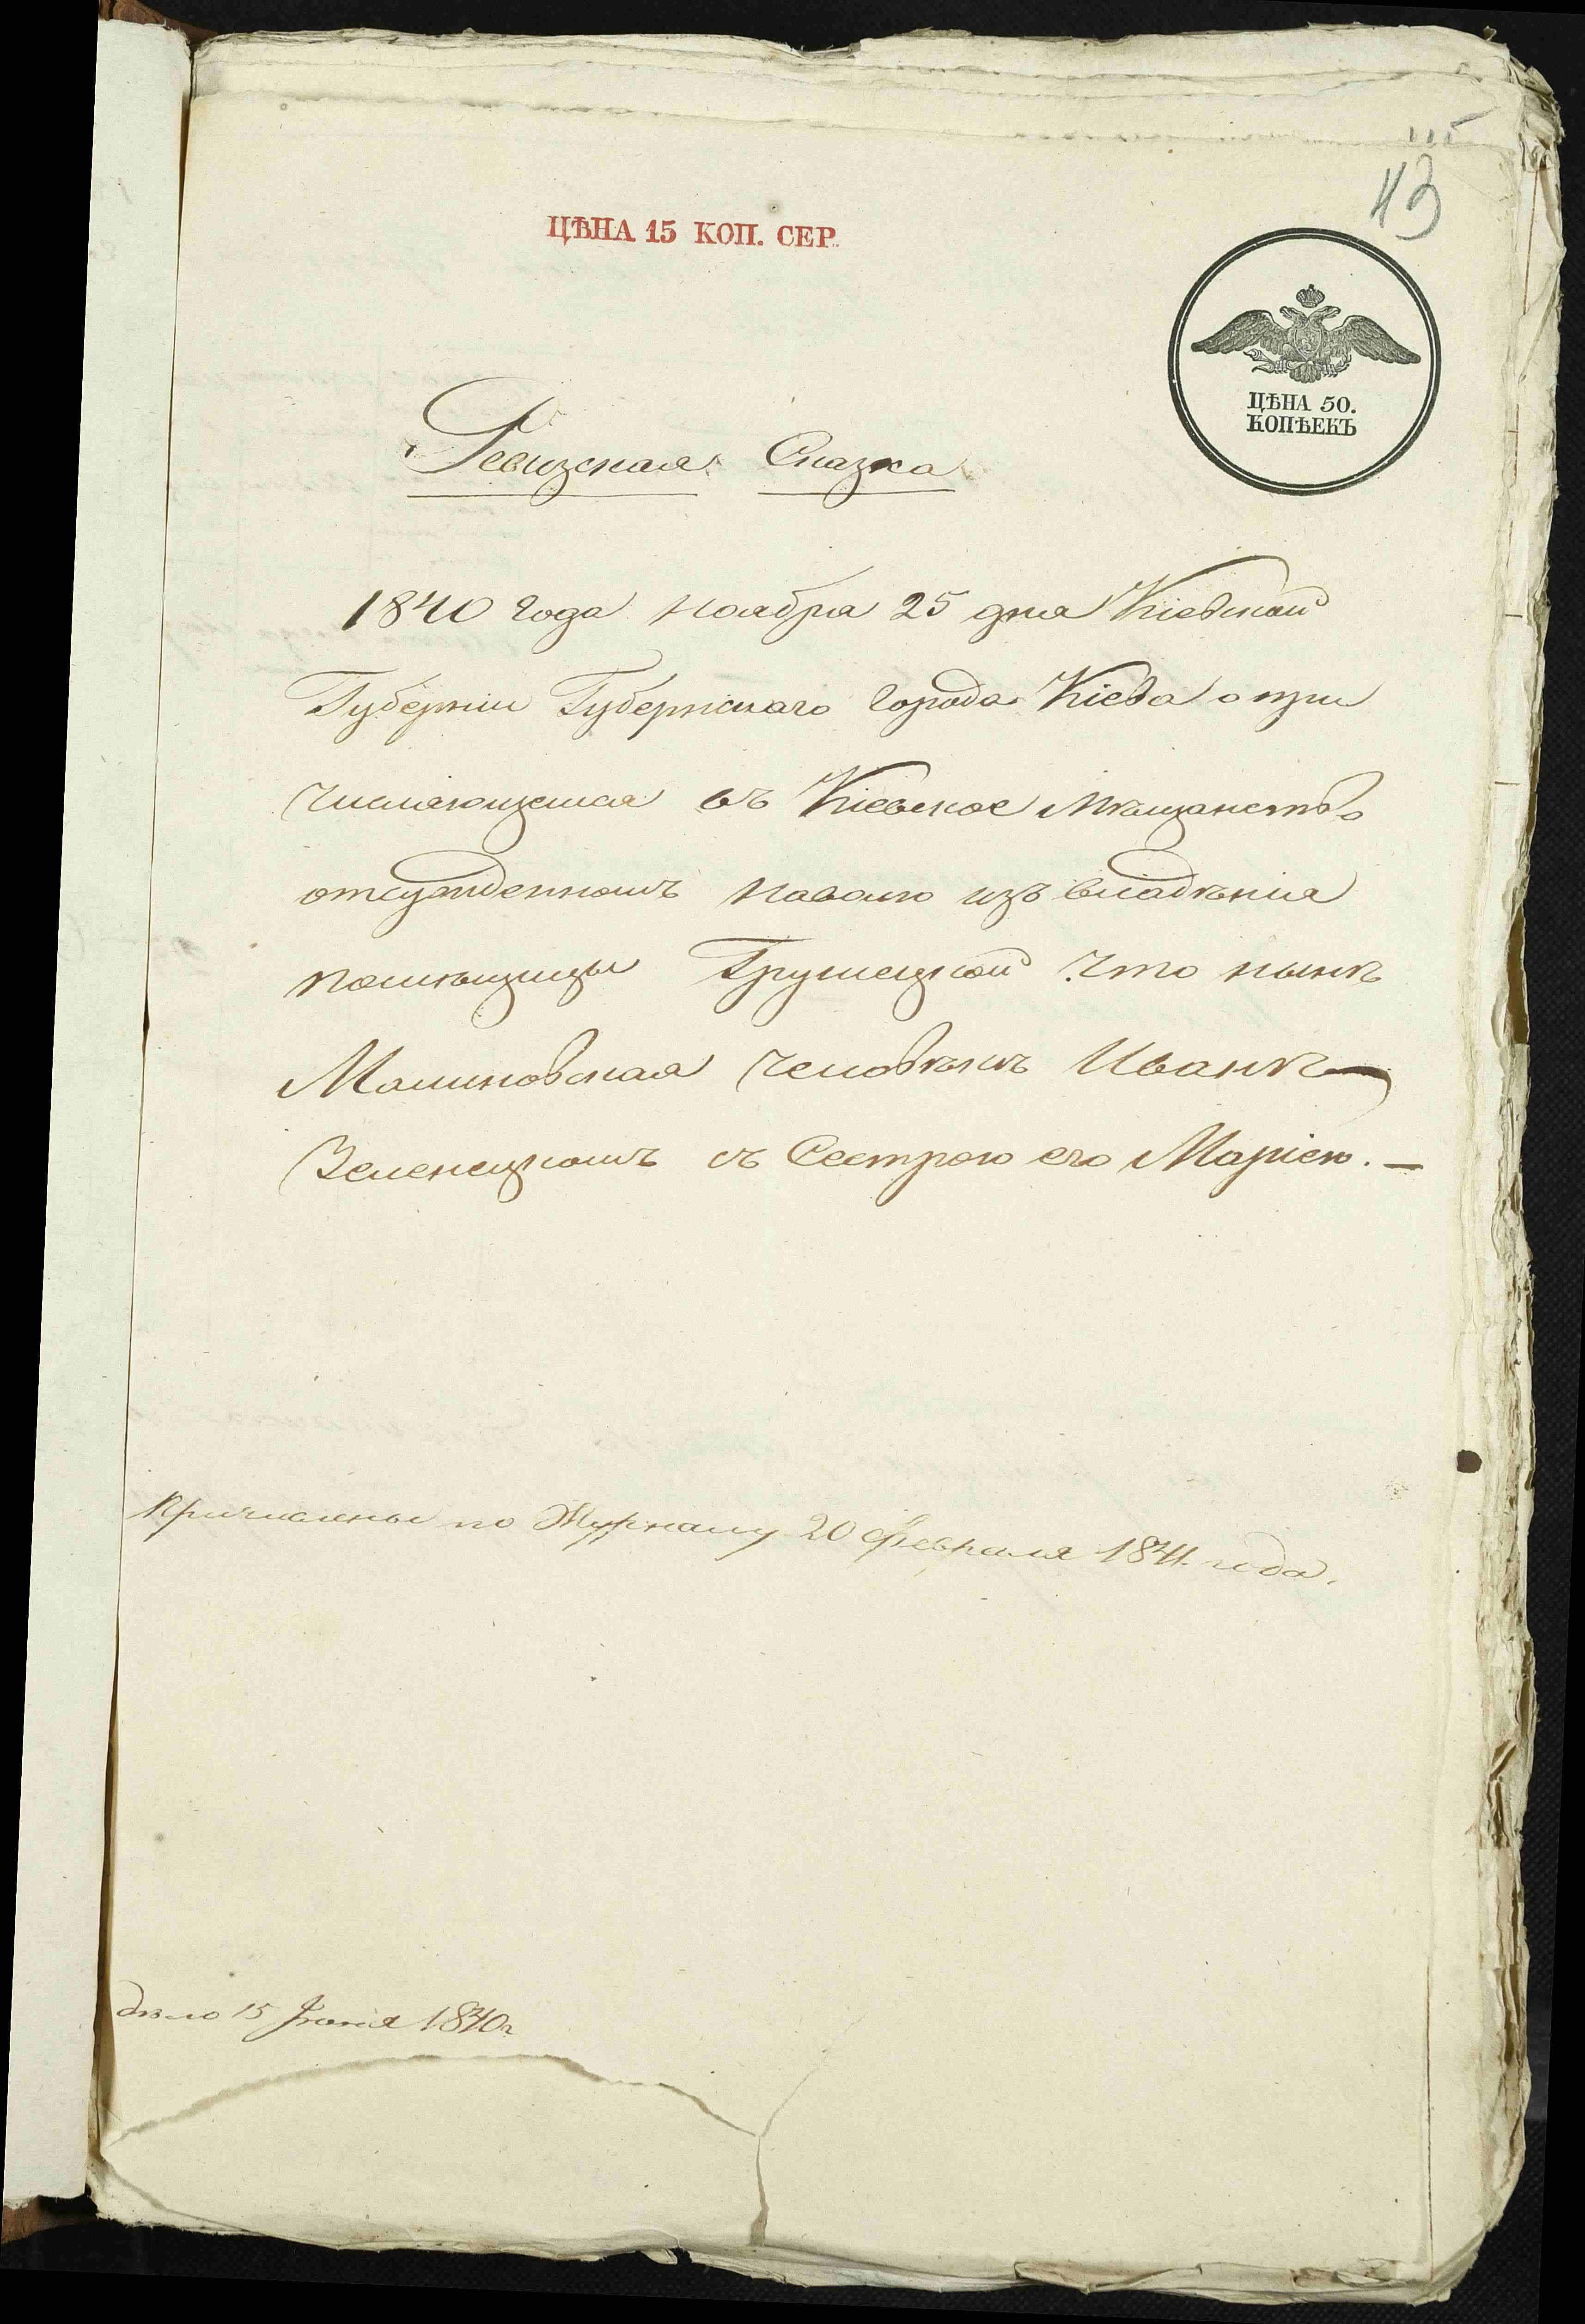 115
43
ЦѢНА 15 КОП. СЕР.
ЦѢНА 50.
КОПѢЕКЪ
Ревизская Сказка
1840 года Ноября 25 дня Кіевской
Губерніи Губернскаго города Кіева о при
числяющемся въ Кіевское Мѣщанство
отсужденномъ на волю изъ владѣнія
помѣщицы Грушецкой что нынѣ
Малиновская человѣкѣ Иванѣ
Зеленецкомъ съ Сестрою его Маріею. —
Причислены по Журналу 20 Февраля 1841. года.
дѣло 15 Іюня 1840 г